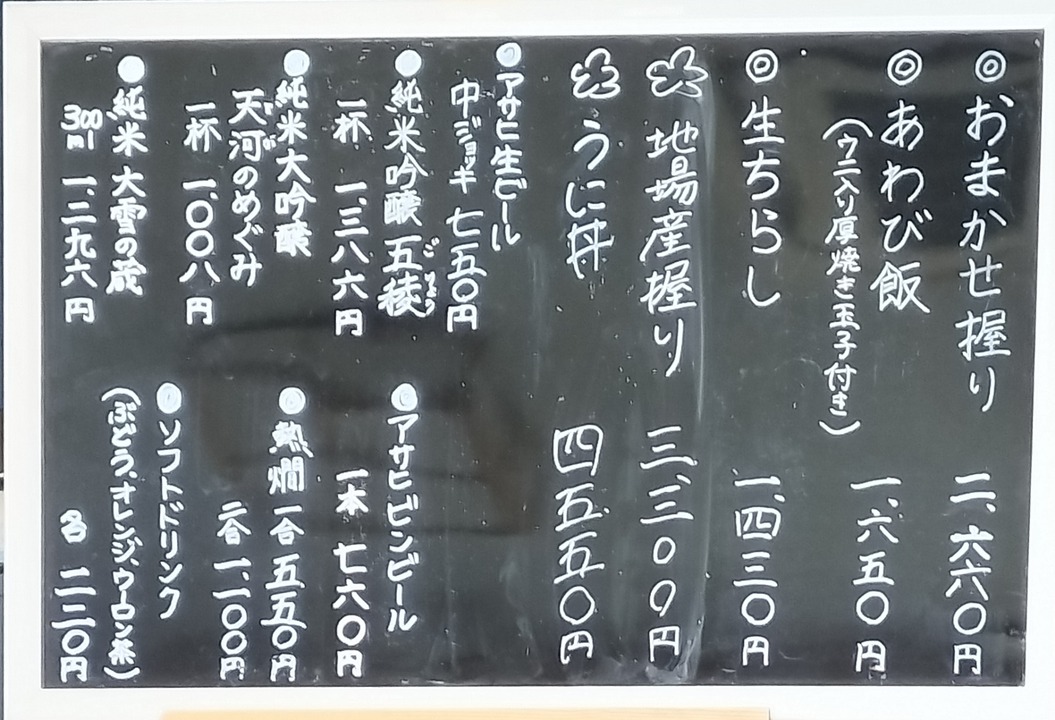 ◎おまかせ握り 二、六六〇円
◎あわび飯 一、六五〇円
(ウニ入り厚焼き玉子付き)
◎生ちらし 一、四三〇円
地場産握り 三、三〇〇円
うに丼 四五五〇円
●アサヒ生ビール
中ジョッキ 七五〇円
●純米吟醸 五稜
ごりょう
一杯 一、三八六円
●純米大吟醸
天河のめぐみ
一杯 一、〇〇八円
●純米 大雪の蔵
300ml 一、二九六円
●アサヒビンビール
一本 七六〇円
●熱燗 一合 五五〇円
二合 一、一〇〇円
●ソフトドリンク
(ぶどう、オレンジ、ウーロン茶)
各 二二〇円